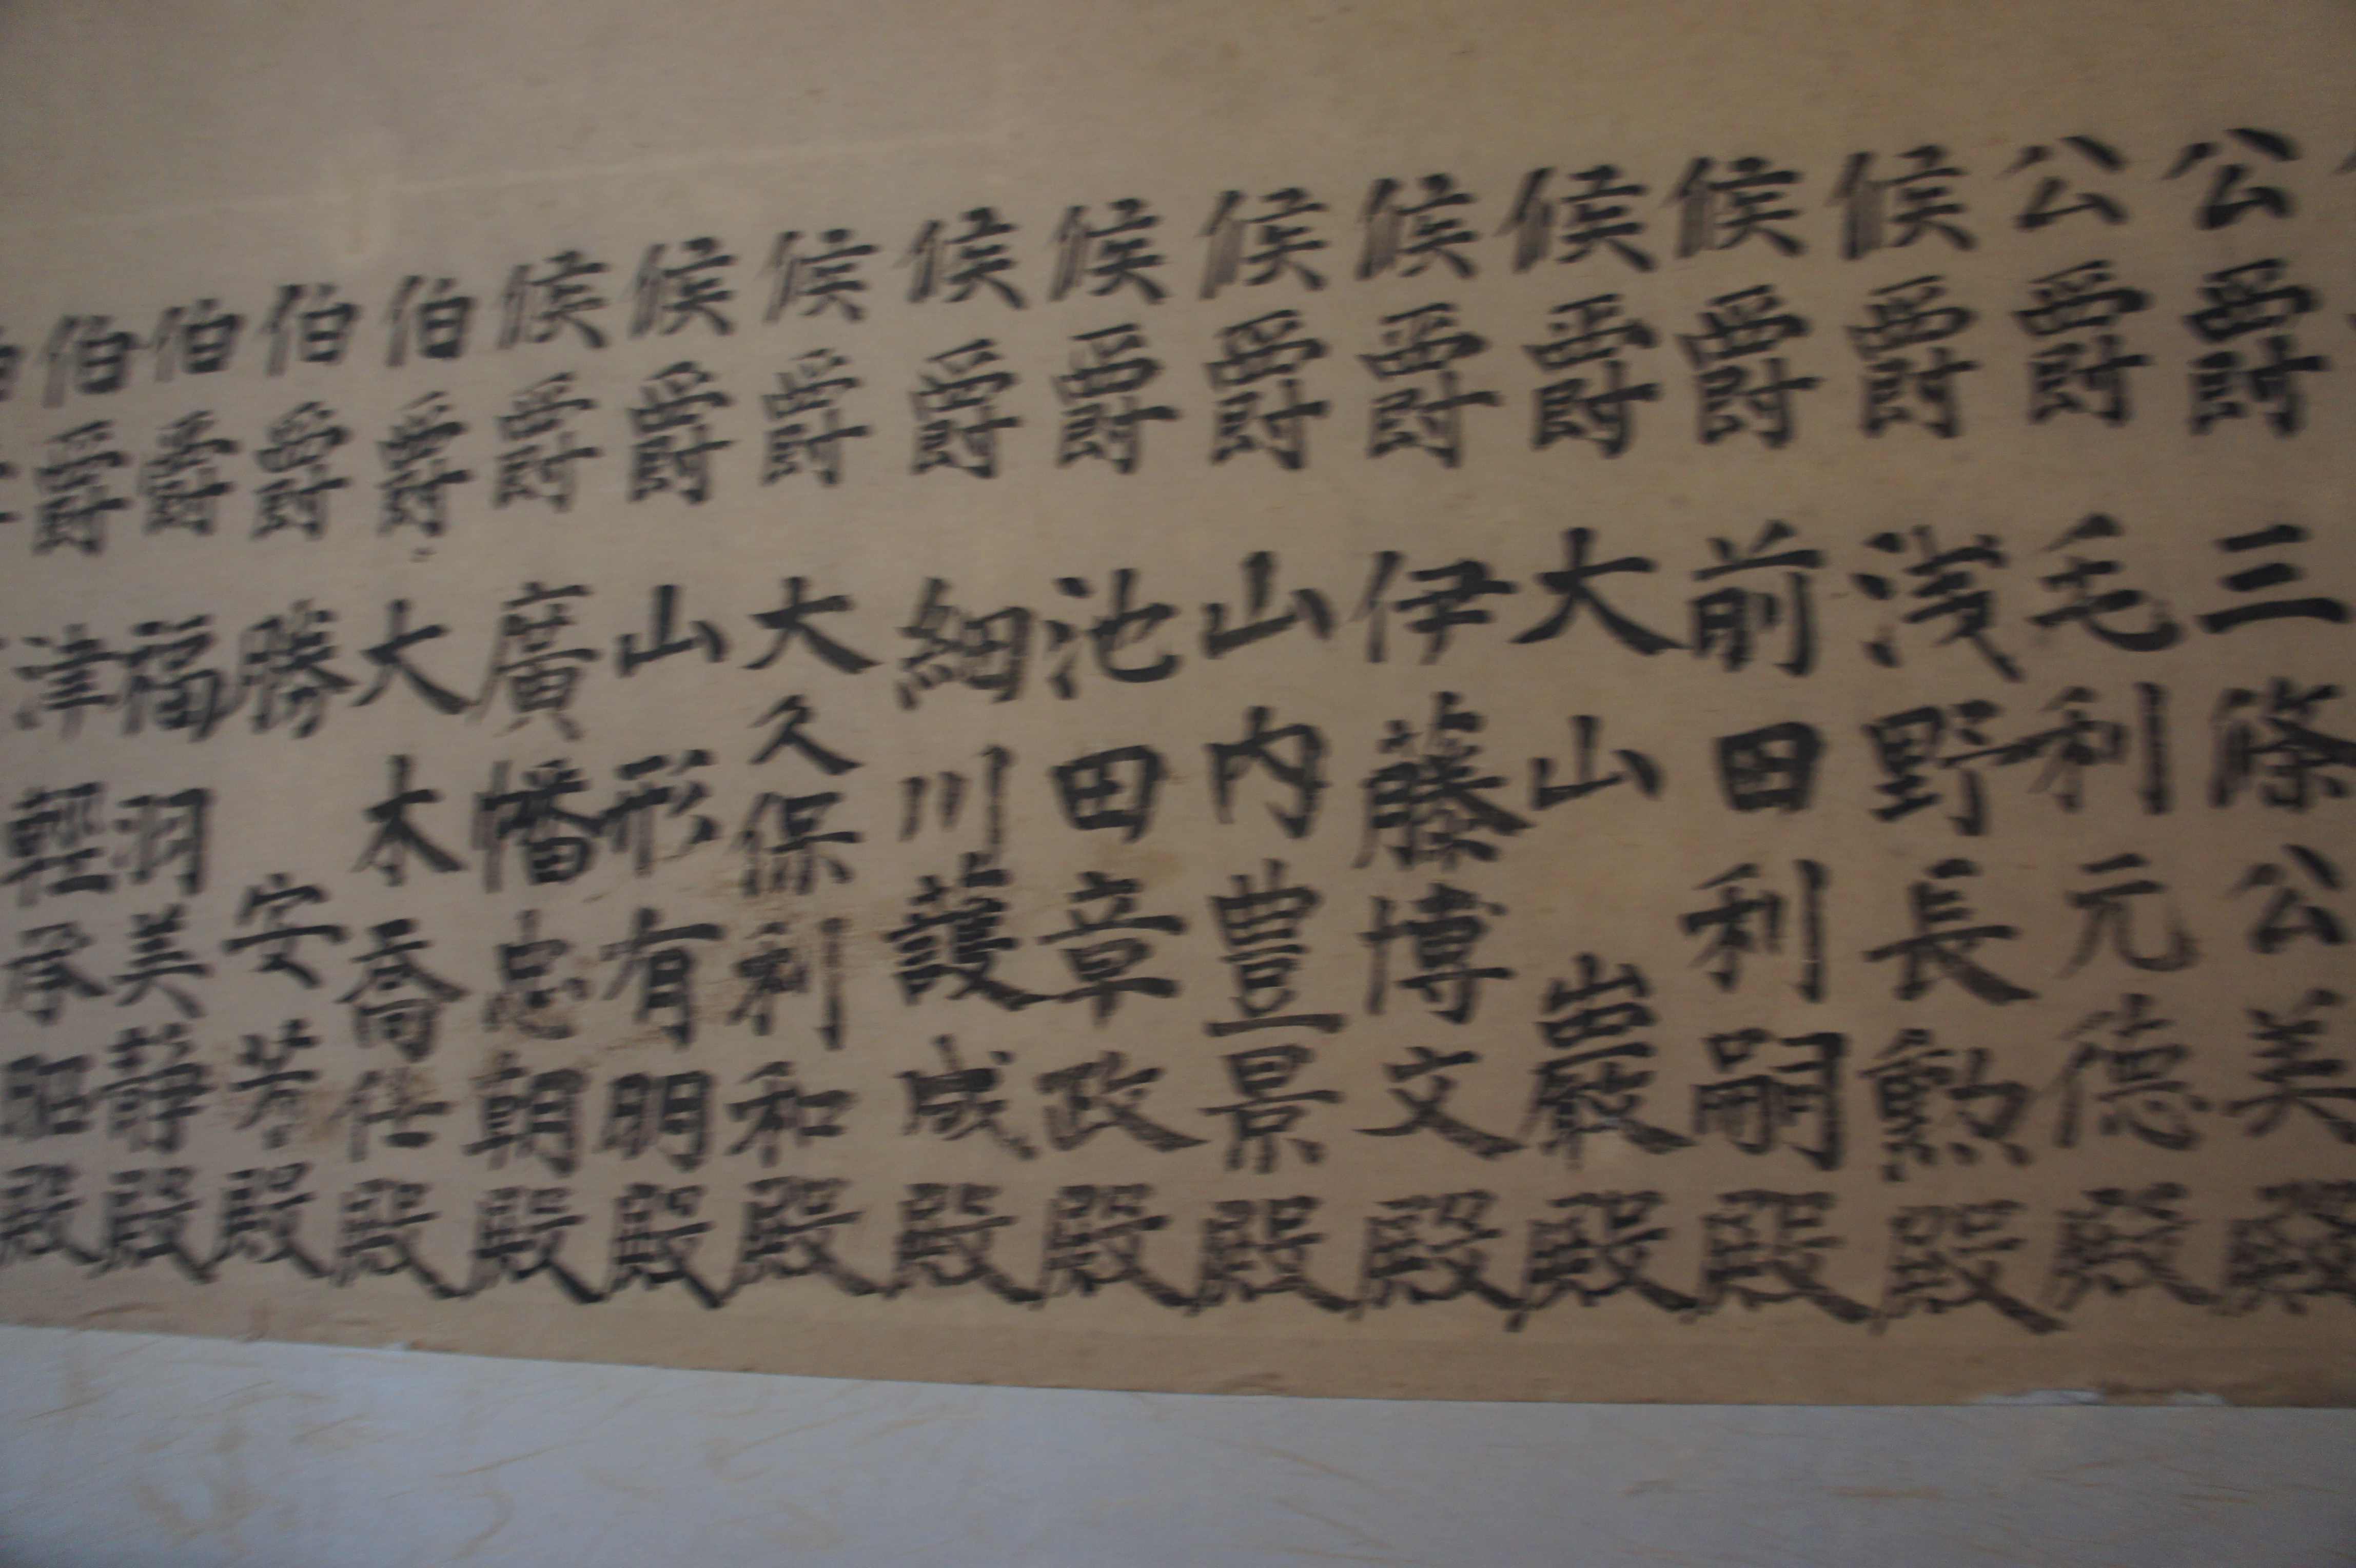 公爵 三條公美殿
公爵 毛利元徳殿
侯爵 浅野長勲殿
侯爵 前田利嗣殿
侯爵 大山巌殿
侯爵 伊藤博文殿
侯爵 山内豊景殿
侯爵 池田章政殿
侯爵 細川護成殿
侯爵 大久保利和殿
侯爵 山形有明殿
侯爵 廣幡忠朝殿
伯爵 大木喬任殿
伯爵 勝安芳殿
伯爵 福羽美静殿
伯爵 津輕承昭殿